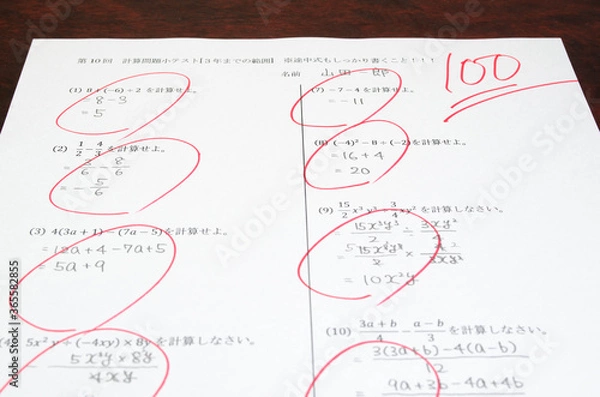 第10回 計算問題小テスト【3年までの範囲】 ※途中式もしっかり書くこと！！！
名前 山田一郎
100
(1) 8+(-6)÷2を計算せよ。
8-3
= 5
(2) 1/2-4/3を計算せよ。
= 3/6-8/6
= -5/6
(3) 4(3a+1)-(7a-5)を計算せよ。
= 12a+4-7a+5
= 5a+9
5x²y÷(-4xy)×8yを計算しなさい。
(7) -7-4を計算せよ。
= -11
(8) (-4)²-8÷(-2)を計算せよ。
= 16+4
= 20
(9) 15/2x³y³÷3/4xy²を計算しなさい。
= 15x³y³/2÷3xy²/4
= 10x²y
(10) 3a+b/4-a-b/3を計算しなさい。
= 3(3a+b)-4(a-b)/12
9a+3b-4a+4b
Adobe Stock | #365582855
Adobe Stock